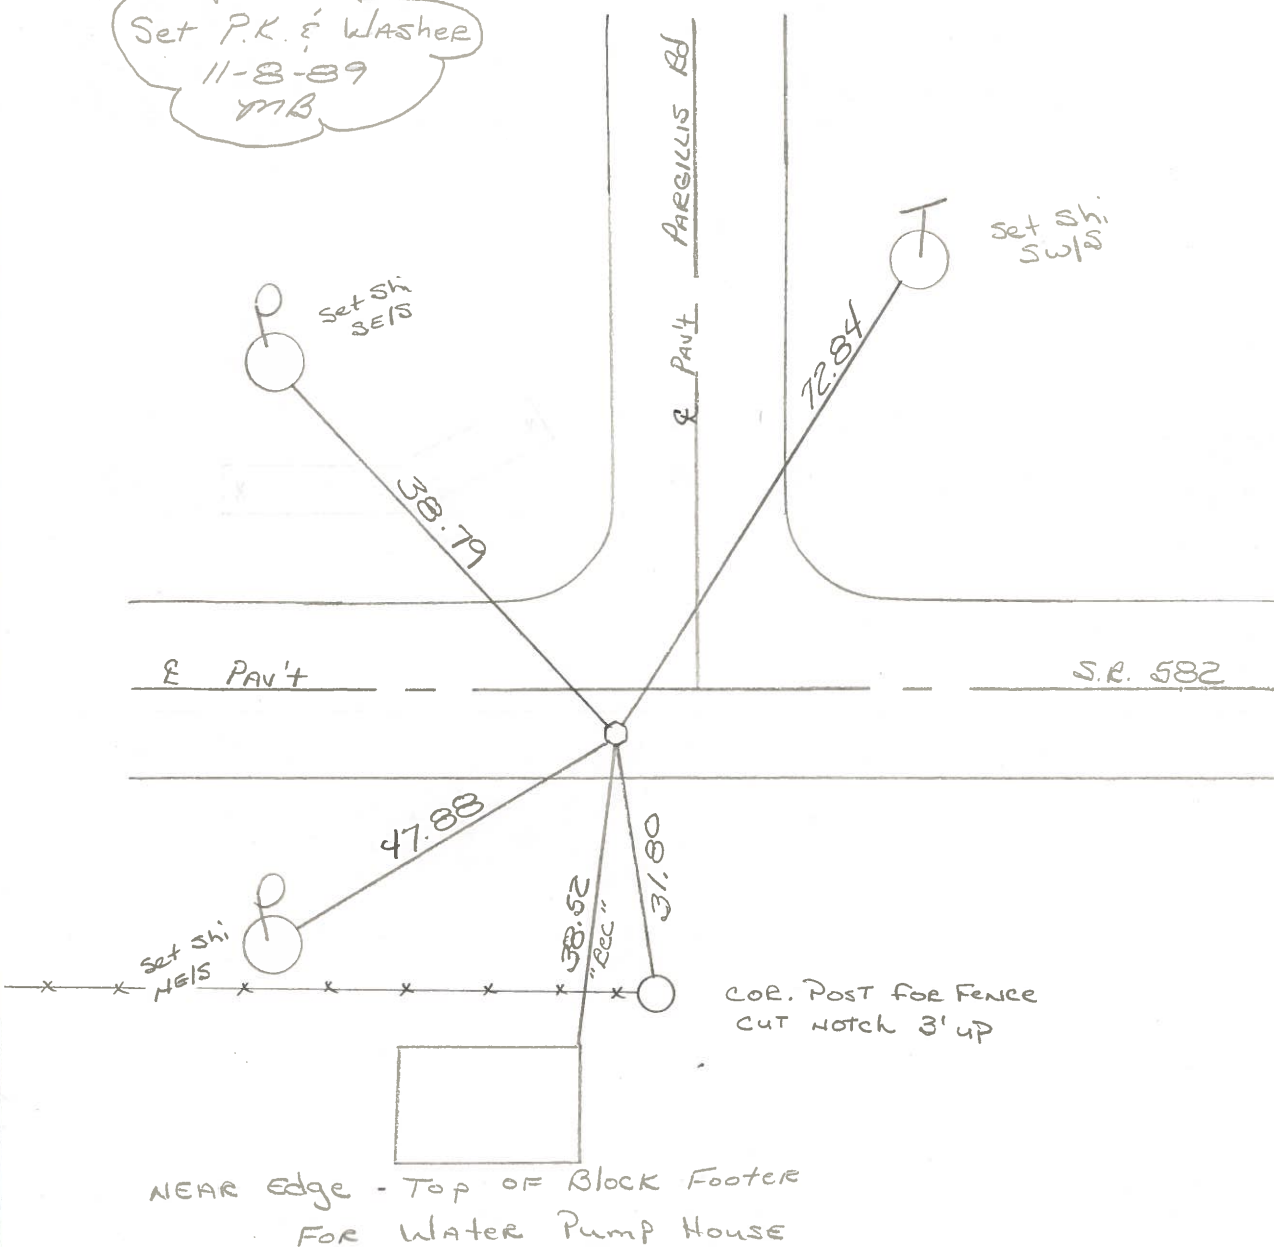 Set P.K. & Washer
11-8-89
MB
℄ Pav't Pargillis Rd
Set Shi
SW/S
Set Shi
SE/S
72.84
38.79
℄ Pav't
S.R. 582
47.88
38.52
"Rec"
31.80
Set Shi
NE/S
Cor. Post for Fence
Cut Notch 3' up
Near Edge - Top of Block Footer
For Water Pump House